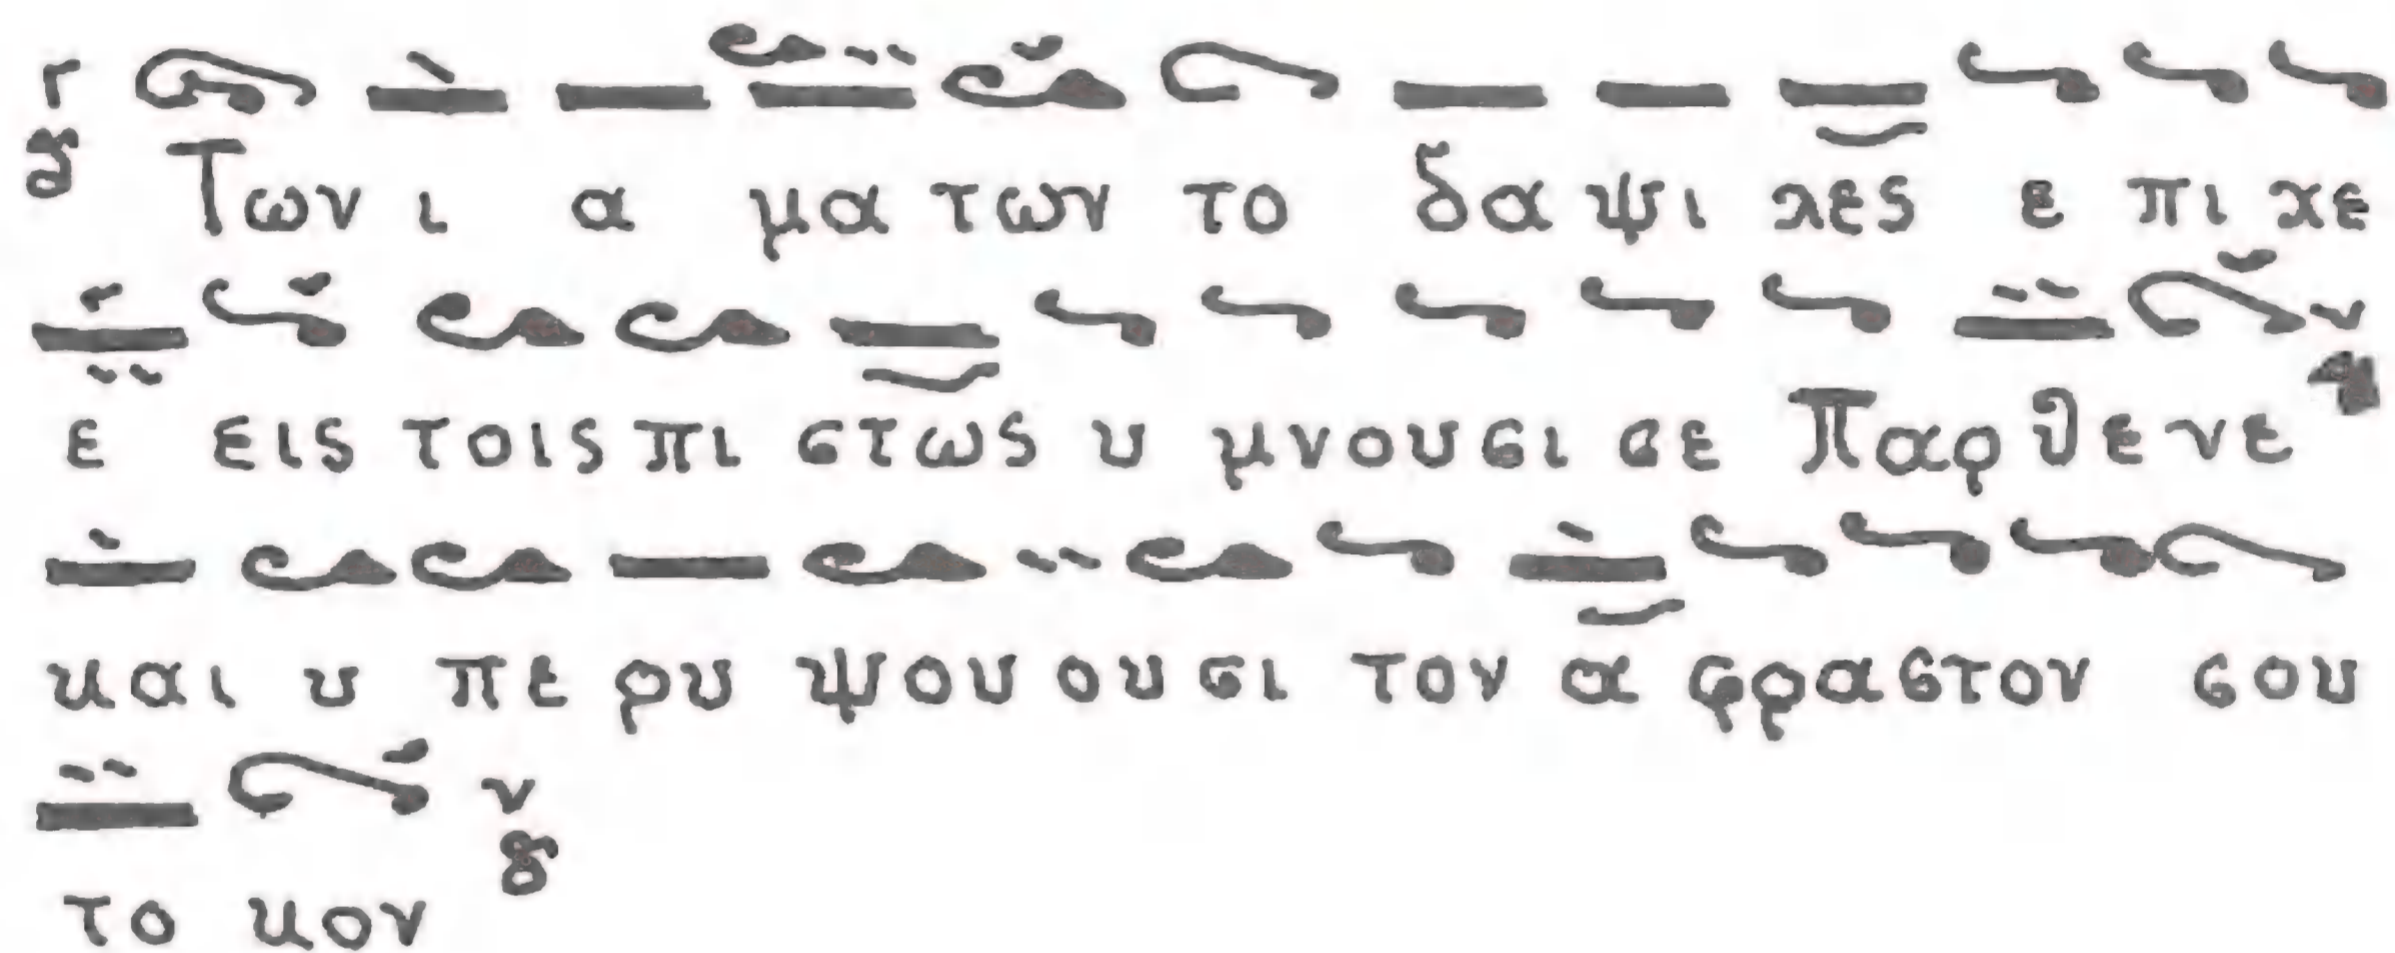 Των ι α μα των το δα ψι λες ε πι χε
ε εις τοις πι στως υ μνου σι σε Παρ θε νε
και υ πε ρυ ψου ου σι τον α φρα στον σου
το κον